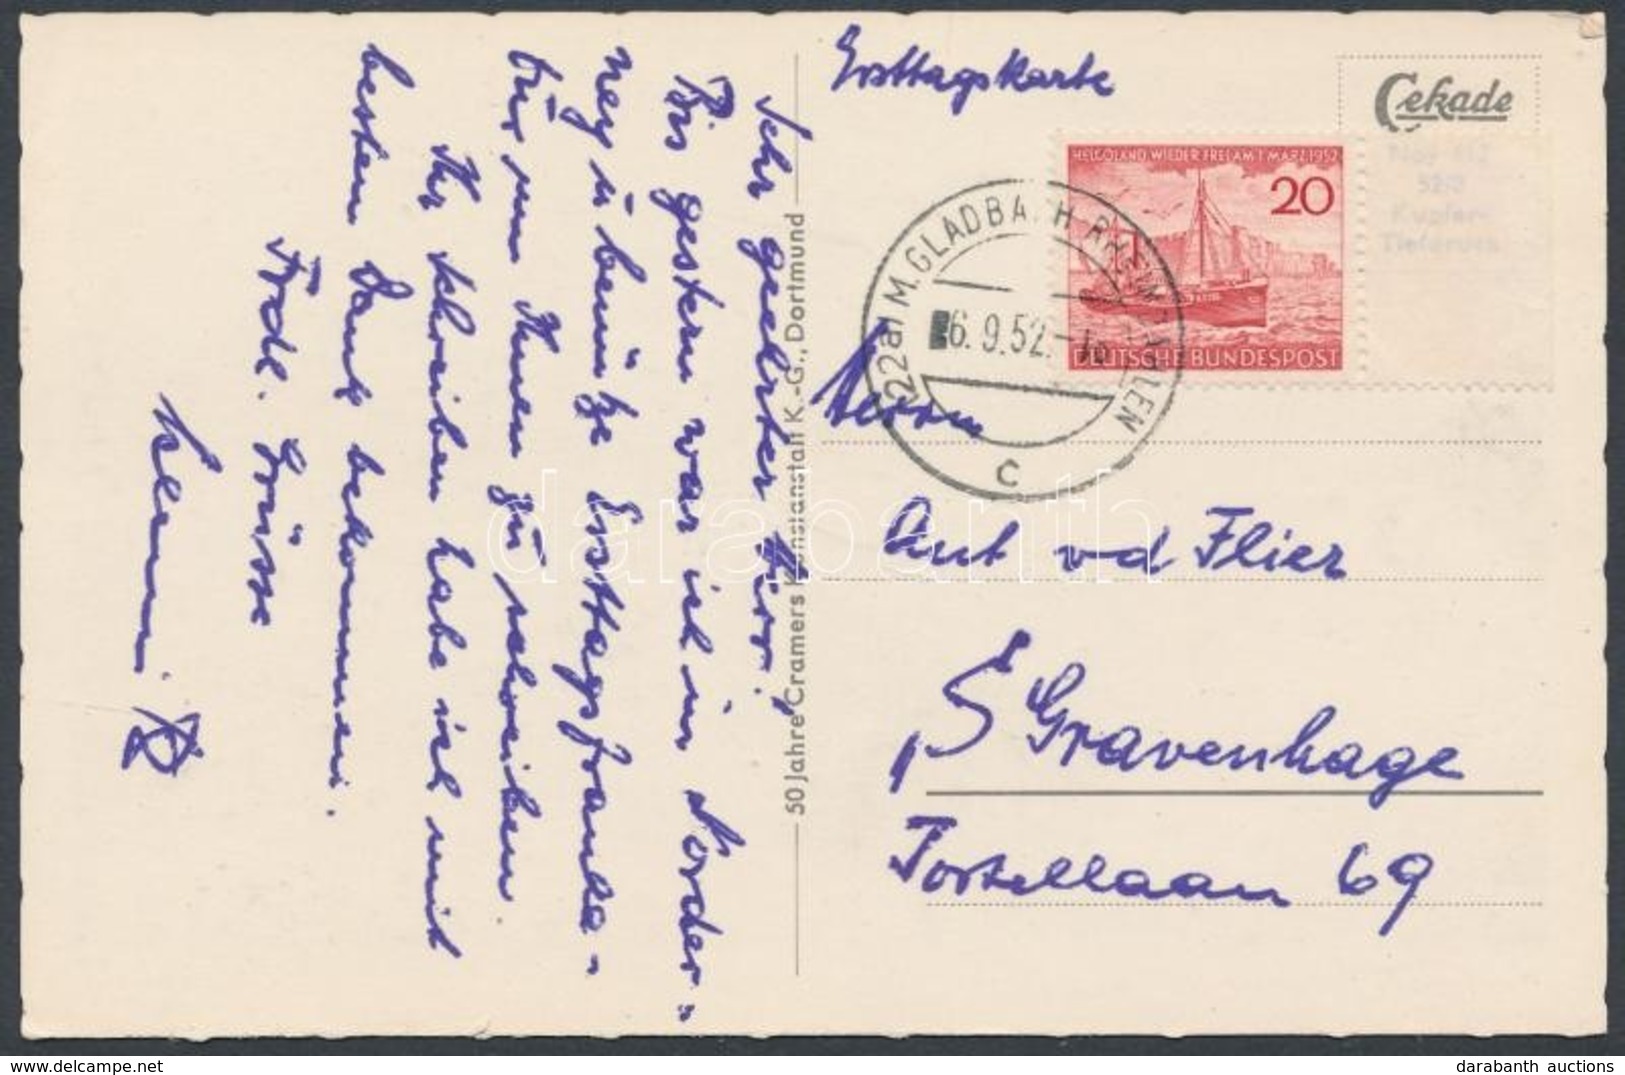 Sehr geehrter Herr!
Bis gestern war ich in Norder-
ney u. benütze Ersttagsfranka-
tur um Ihnen zu schreiben.
Ihr Schreiben habe ich mit
bestem Dank bekommen.
Frdl. Grüsse
50 Jahre Cramers Kunstanstalt K.-G., Dortmund
Ersttagskarte
Cekade
HELGOLAND WIEDER FREI AM 1. MÄRZ 1952
20
DEUTSCHE BUNDESPOST
Kupfer-
Tiefdruck
(22a) M. GLADBACH-RHEINDAHLEN
6.9.52.-16
c
Herrn
Ant vd Flier
's Gravenhage
69
darabanth
darabanth auctions